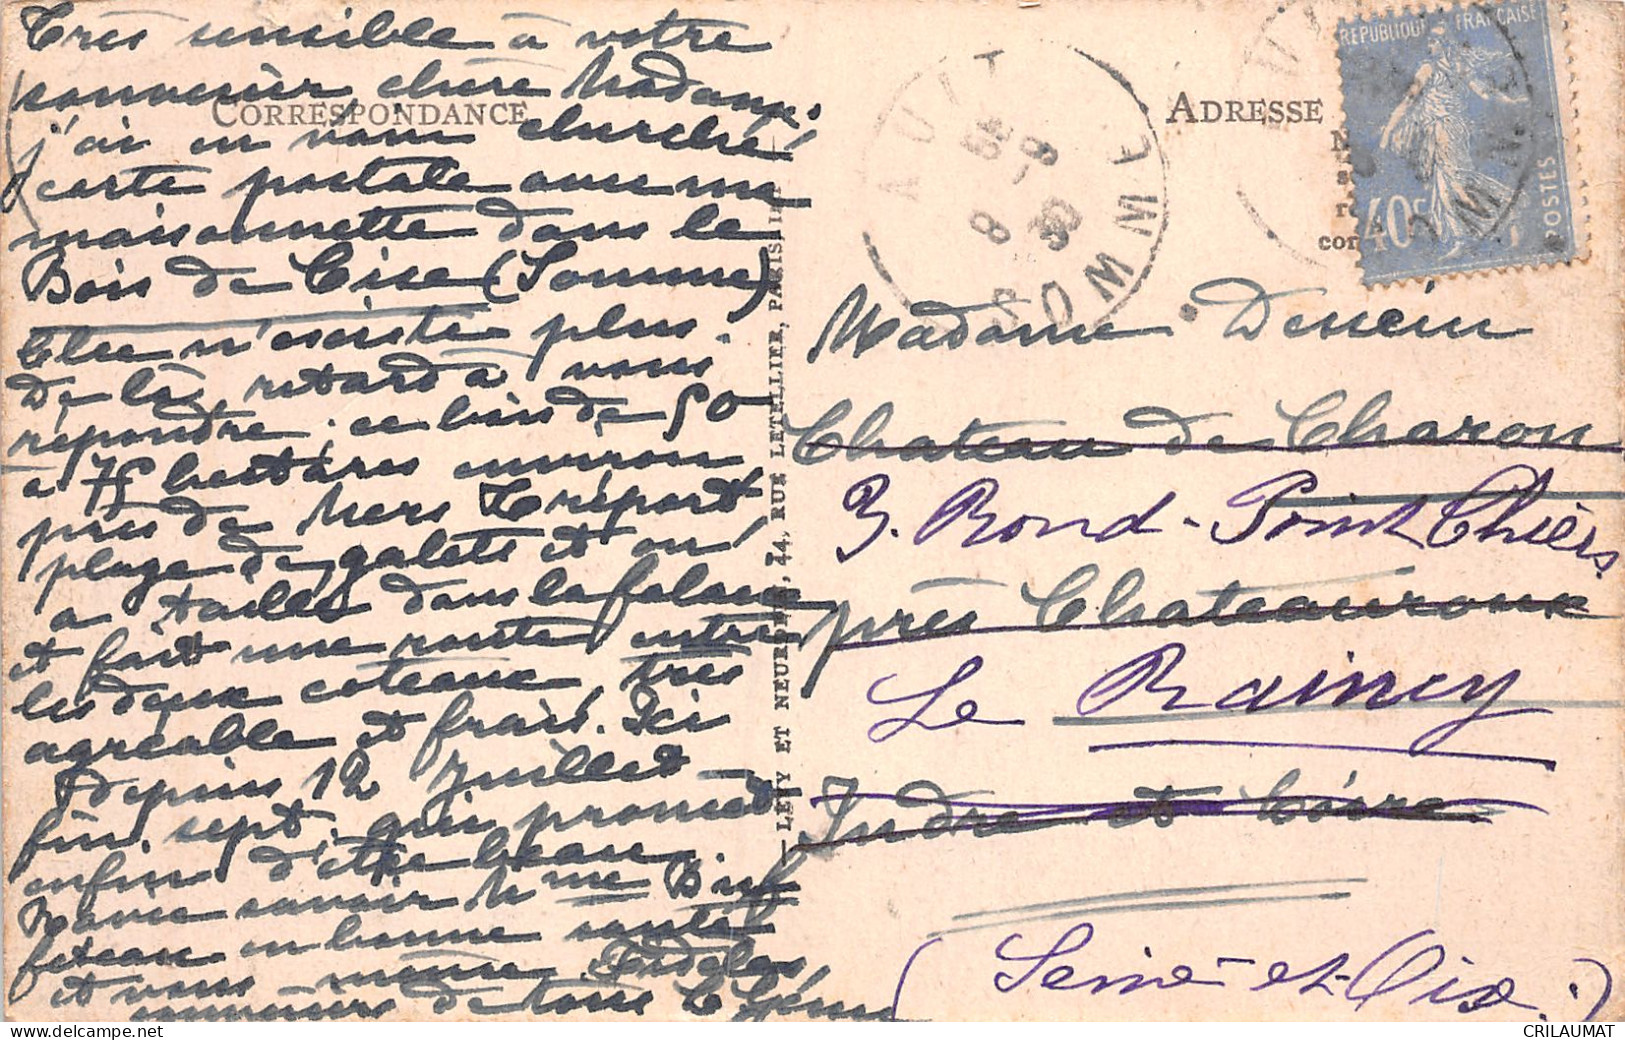 Très sensible à votre
souvenir chère Madame,
CORRESPONDANCE
j'ai en vain cherché
carte postale avec ma
maisonnette dans le
Bois de Cise (Somme)
Elle n'existe plus.
De là, retard à vous
répondre, ce bois de 50
à 75 hectares environ
près de Mers Tréport
plage de galets et on
a taillé dans la falaise
et fait une route entre
les deux coteaux, très
agréable et frais. Ici
depuis 12 Juillet
fin sept. qui promet
enfin d'être beau.
Ravie savoir Mme
en bonne santé
et vous même. Fidèles
souvenirs de tous
LEVY ET NEURDEIN, 44, RUE LETELLIER, PARIS
AULT
SOMME
8 - 9
30
ADRESSE
REPUBLIQUE FRANÇAISE
40c
POSTES
Madame Dessein
Chateau de Charon
3. Rond-Point Thiers
près Chateauroux
Le Raincy
Indre et Loire
(Seine-et-Oise.)
CRILAUMAT